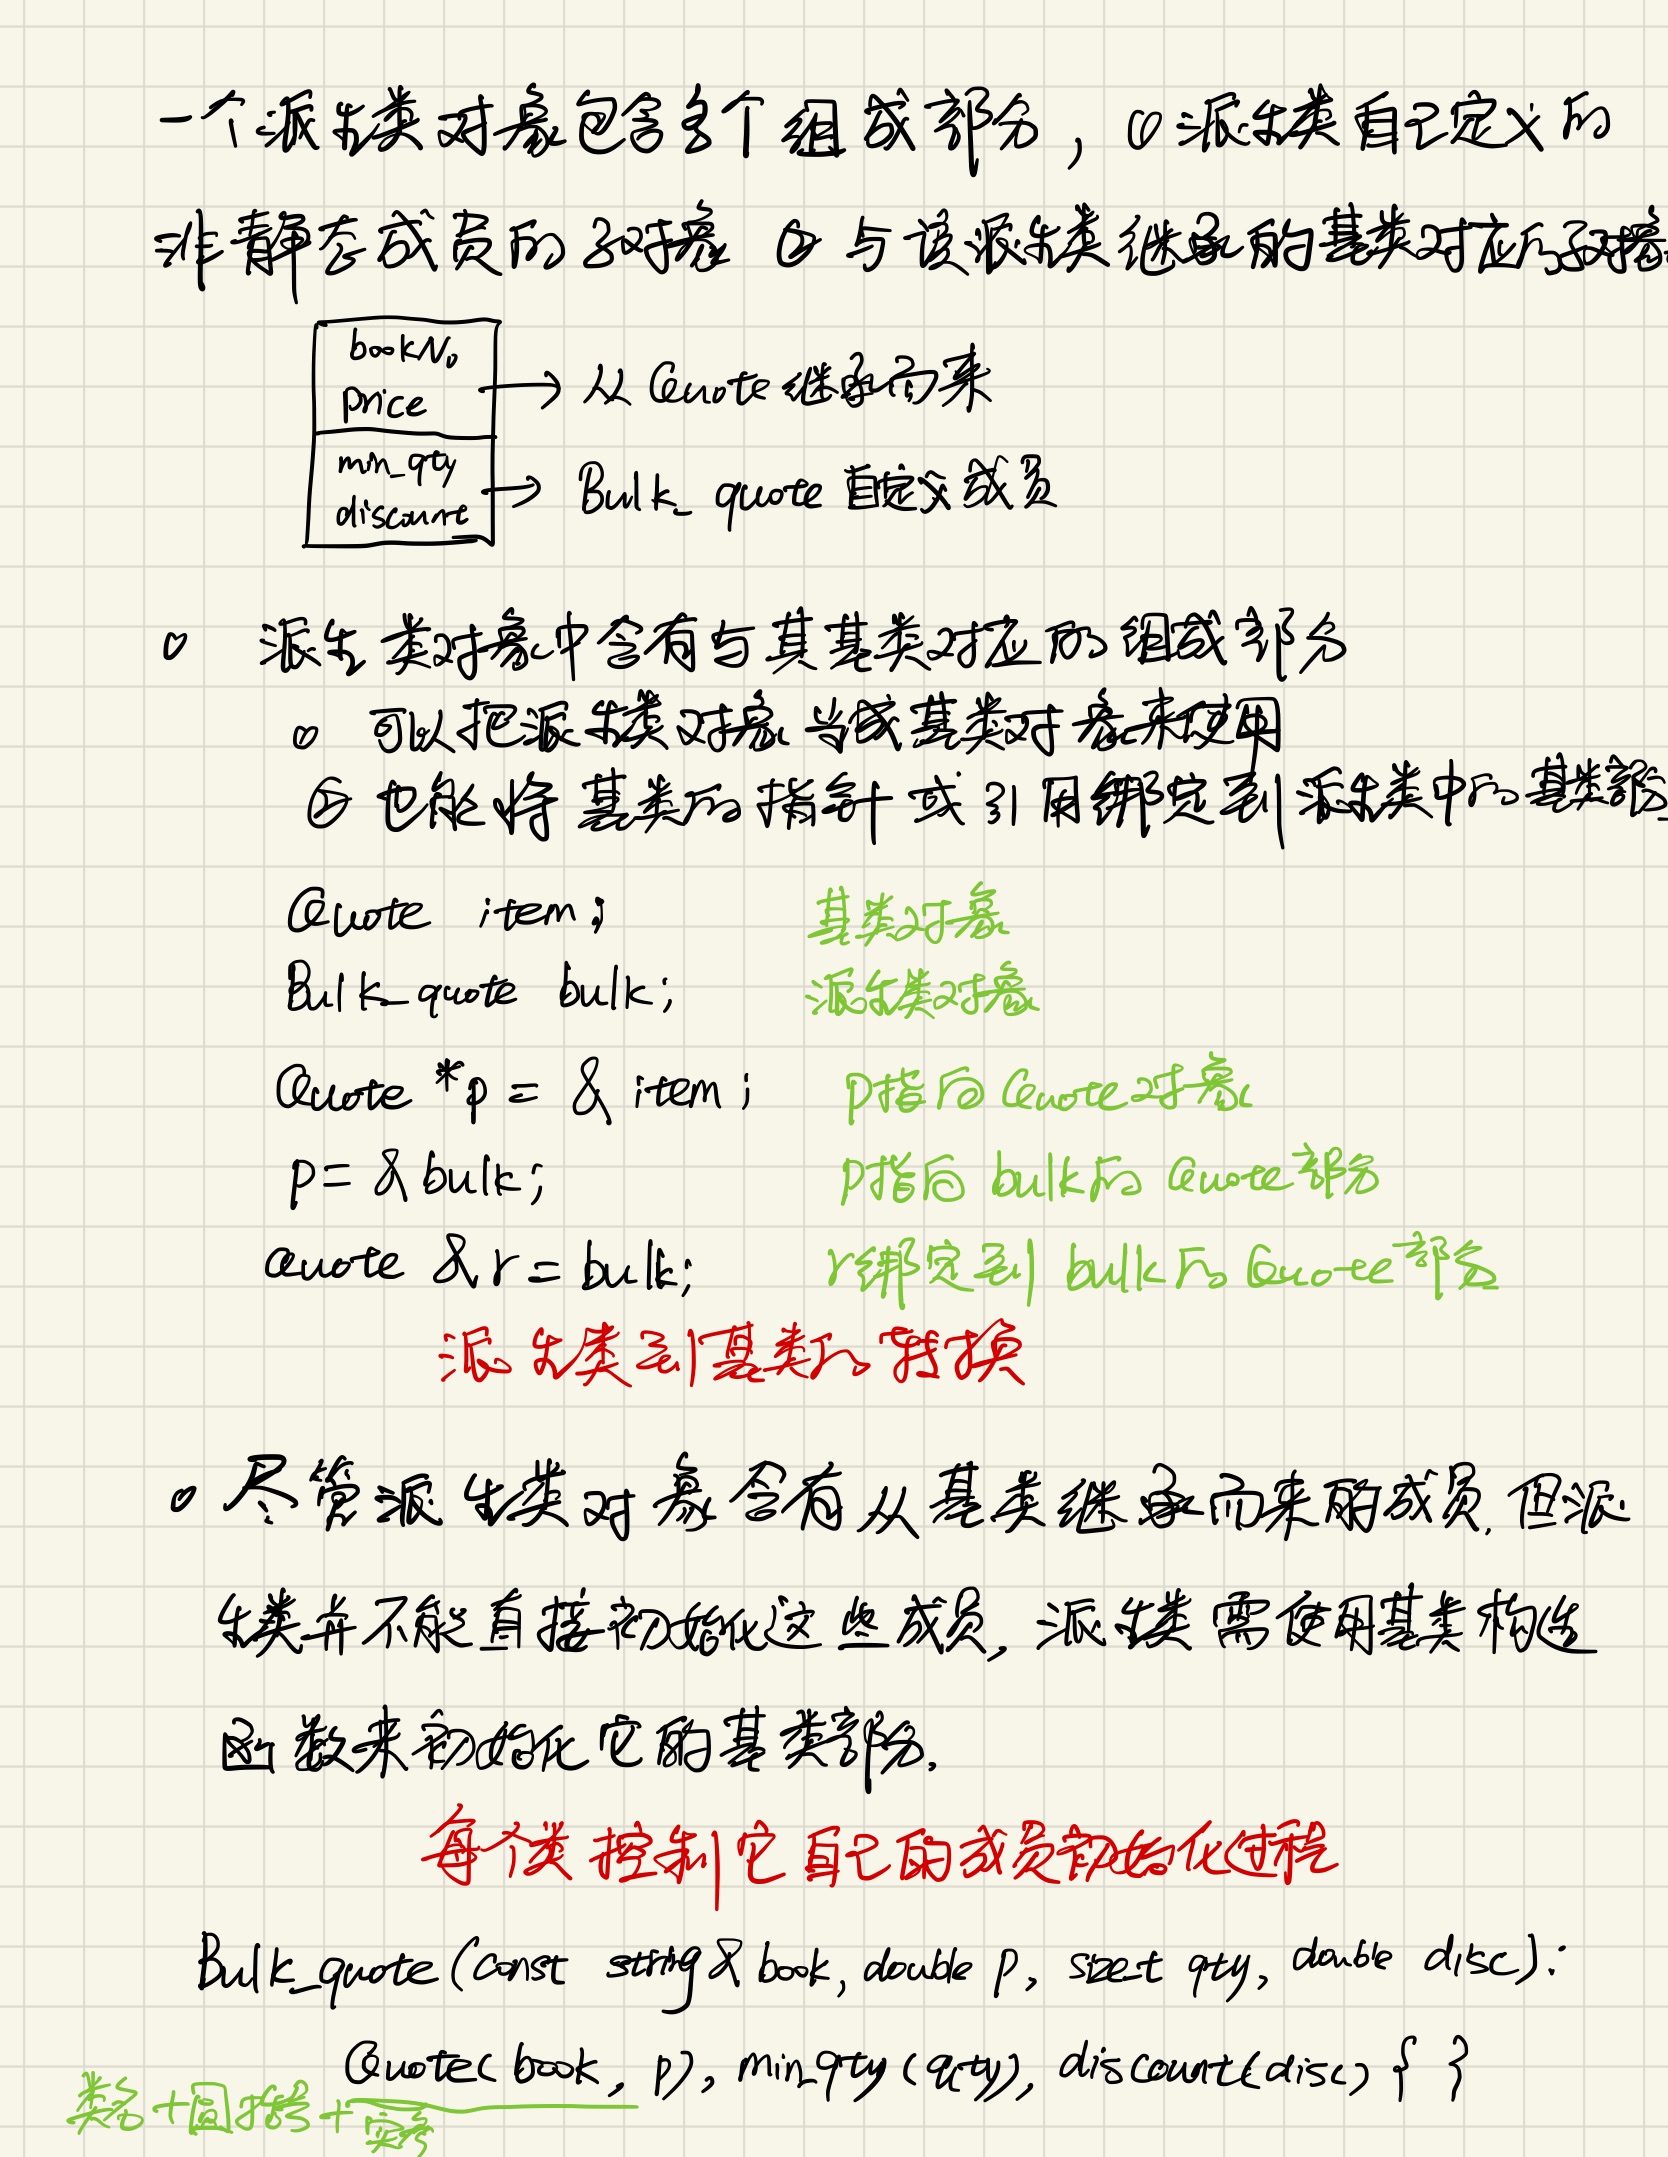 一个派生类对象包含多个组成部分，① 派生类自己定义的
非静态成员的子对象 ② 与该派生类继承的基类对应的子对象
bookNo
price → 从 Quote 继承而来
min_qty
discount → Bulk_quote 自定义成员
派生类对象中含有与其基类对应的组成部分
可以把派生类对象当成基类对象来使用
② 也能将基类的指针或引用绑定到派生类中的基类部分
Quote item; 基类对象
Bulk_quote bulk; 派生类对象
Quote *p = & item; p指向 Quote 对象
p = & bulk; p指向 bulk 的 Quote 部分
Quote & r = bulk; r绑定到 bulk 的 Quote 部分
派生类到基类的转换
尽管派生类对象含有从基类继承而来的成员, 但派
生类并不能直接初始化这些成员, 派生类需使用基类构造
函数来初始化它的基类部分.
每个类控制它自己的成员初始化过程
Bulk_quote (const string & book, double p, size_t qty, double disc):
Quote( book, p), min_qty (qty), discount(disc) { }
类名+圆括号+实参